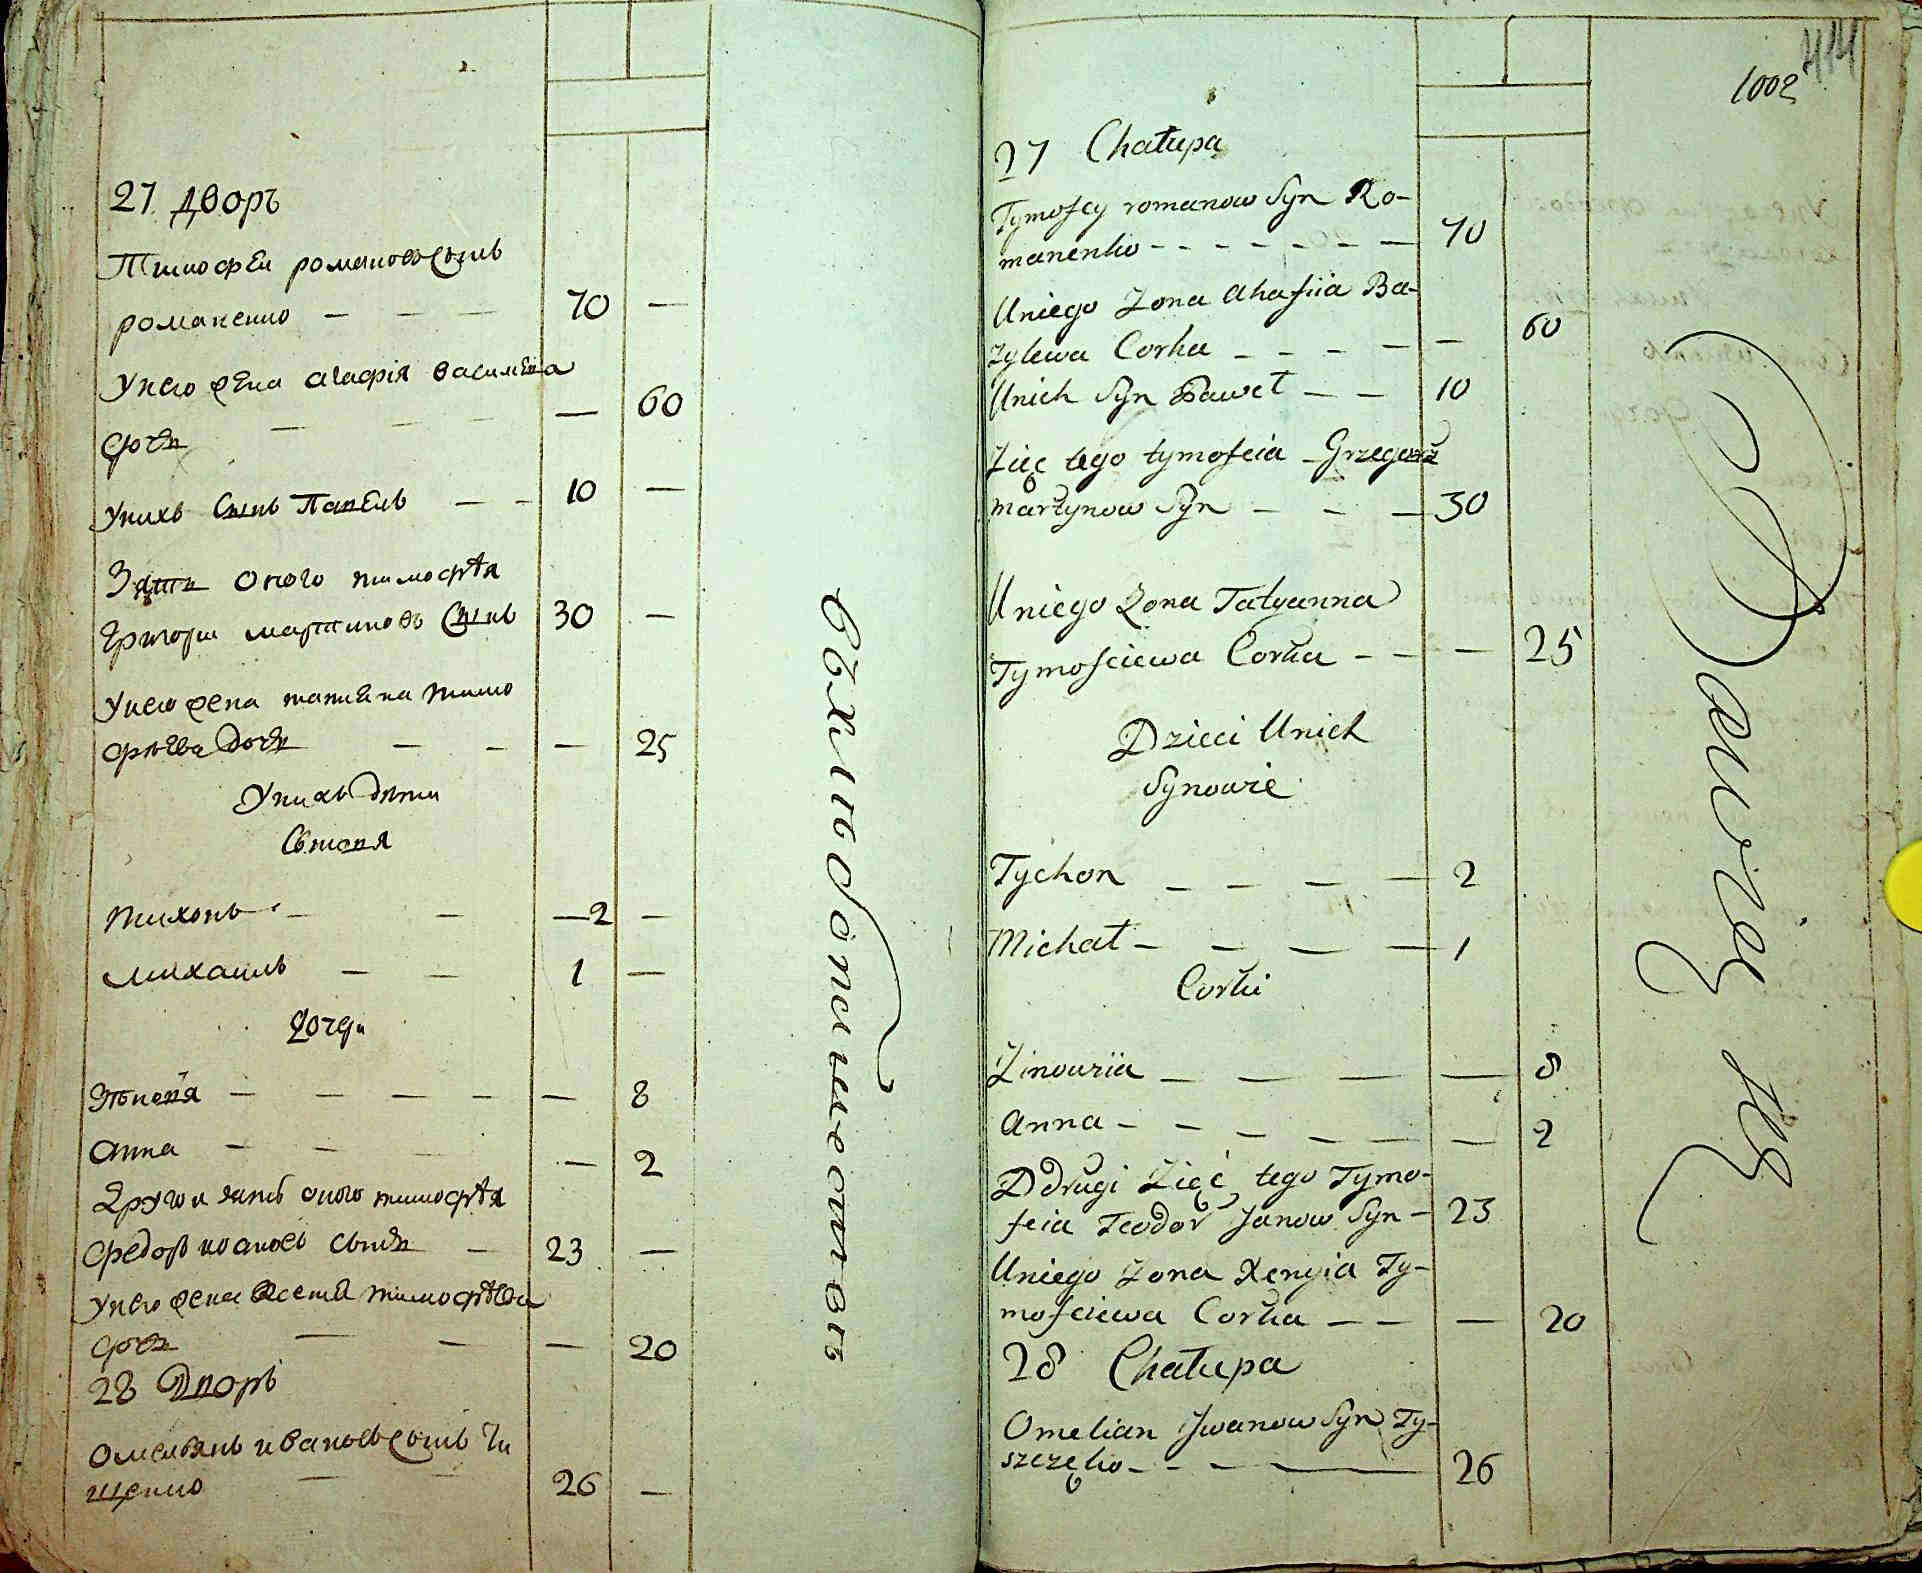 27 дворъ
Тимофеи романовъ сынъ
романенко — — — 70 —
У него жена агафия василева
дочь — — — — 60
У нихъ сынъ Павелъ — — 10 —
Зять оного тимофѣя
Григори мартиновъ сынъ 30 —
У него жена татиана тимо
фѣева дочь — — — 25
У нихъ дѣти
Сѣновя
тихонъ — — — 2 —
михаилъ — — 1 —
дочери
анна — — — 2
Другои зять оного тимофѣя
Федоръ ивановъ сынъ — 23 —
У него жена Ксения тимофѣева
дочь — — — 20
28 Дворъ
Омелянъ ивановъ сынъ Ти
щенко — — 26 —
1002
414
27 Chałupa
Tymofey romanow Syn Ro-
manenko - - - - - - — 70
Uniego Zona Ahafiia Ba-
zylewa Corka - - - — — 60
Unich Syn Paweł — — 10
Zięć tego tymofeia Grzegorz
martynow Syn — - — 30
Uniego Zona Tatyanna
Tymofeiewa Corka - — — 25
Dzieci Unich
Synowie
Tychon — — — — 2
Michał — — — — 1
Corki
Zinowiia — — — — 8
Anna — - — — — — 2
Ddrugi Zięć tego Tymo-
feia Teodor Janow Syn — 23
Uniego Zona Xenyia Ty-
mofeiewa Corka — — — 20
28 Chałupa
Omelian Jwanow Syn Ty-
szczęko - - - — 26